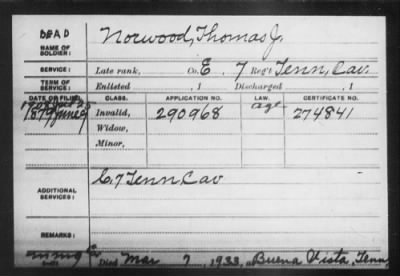 DEAD
NAME OF SOLDIER:
Norwood, Thomas J.
SERVICE:
Late rank, Co. E, 7 Reg't Tenn. Cav.
TERM OF SERVICE:
Enlisted , 1 Discharged , 1
DATE OF FILING. CLASS. APPLICATION NO. LAW. CERTIFICATE NO.
1879 June Invalid, 290968 age 274841
Widow,
Minor,
ADDITIONAL SERVICES:
C. 7 Tenn. Cav
REMARKS:
Died Mar 7, 1933, at Buena Vista, Tenn